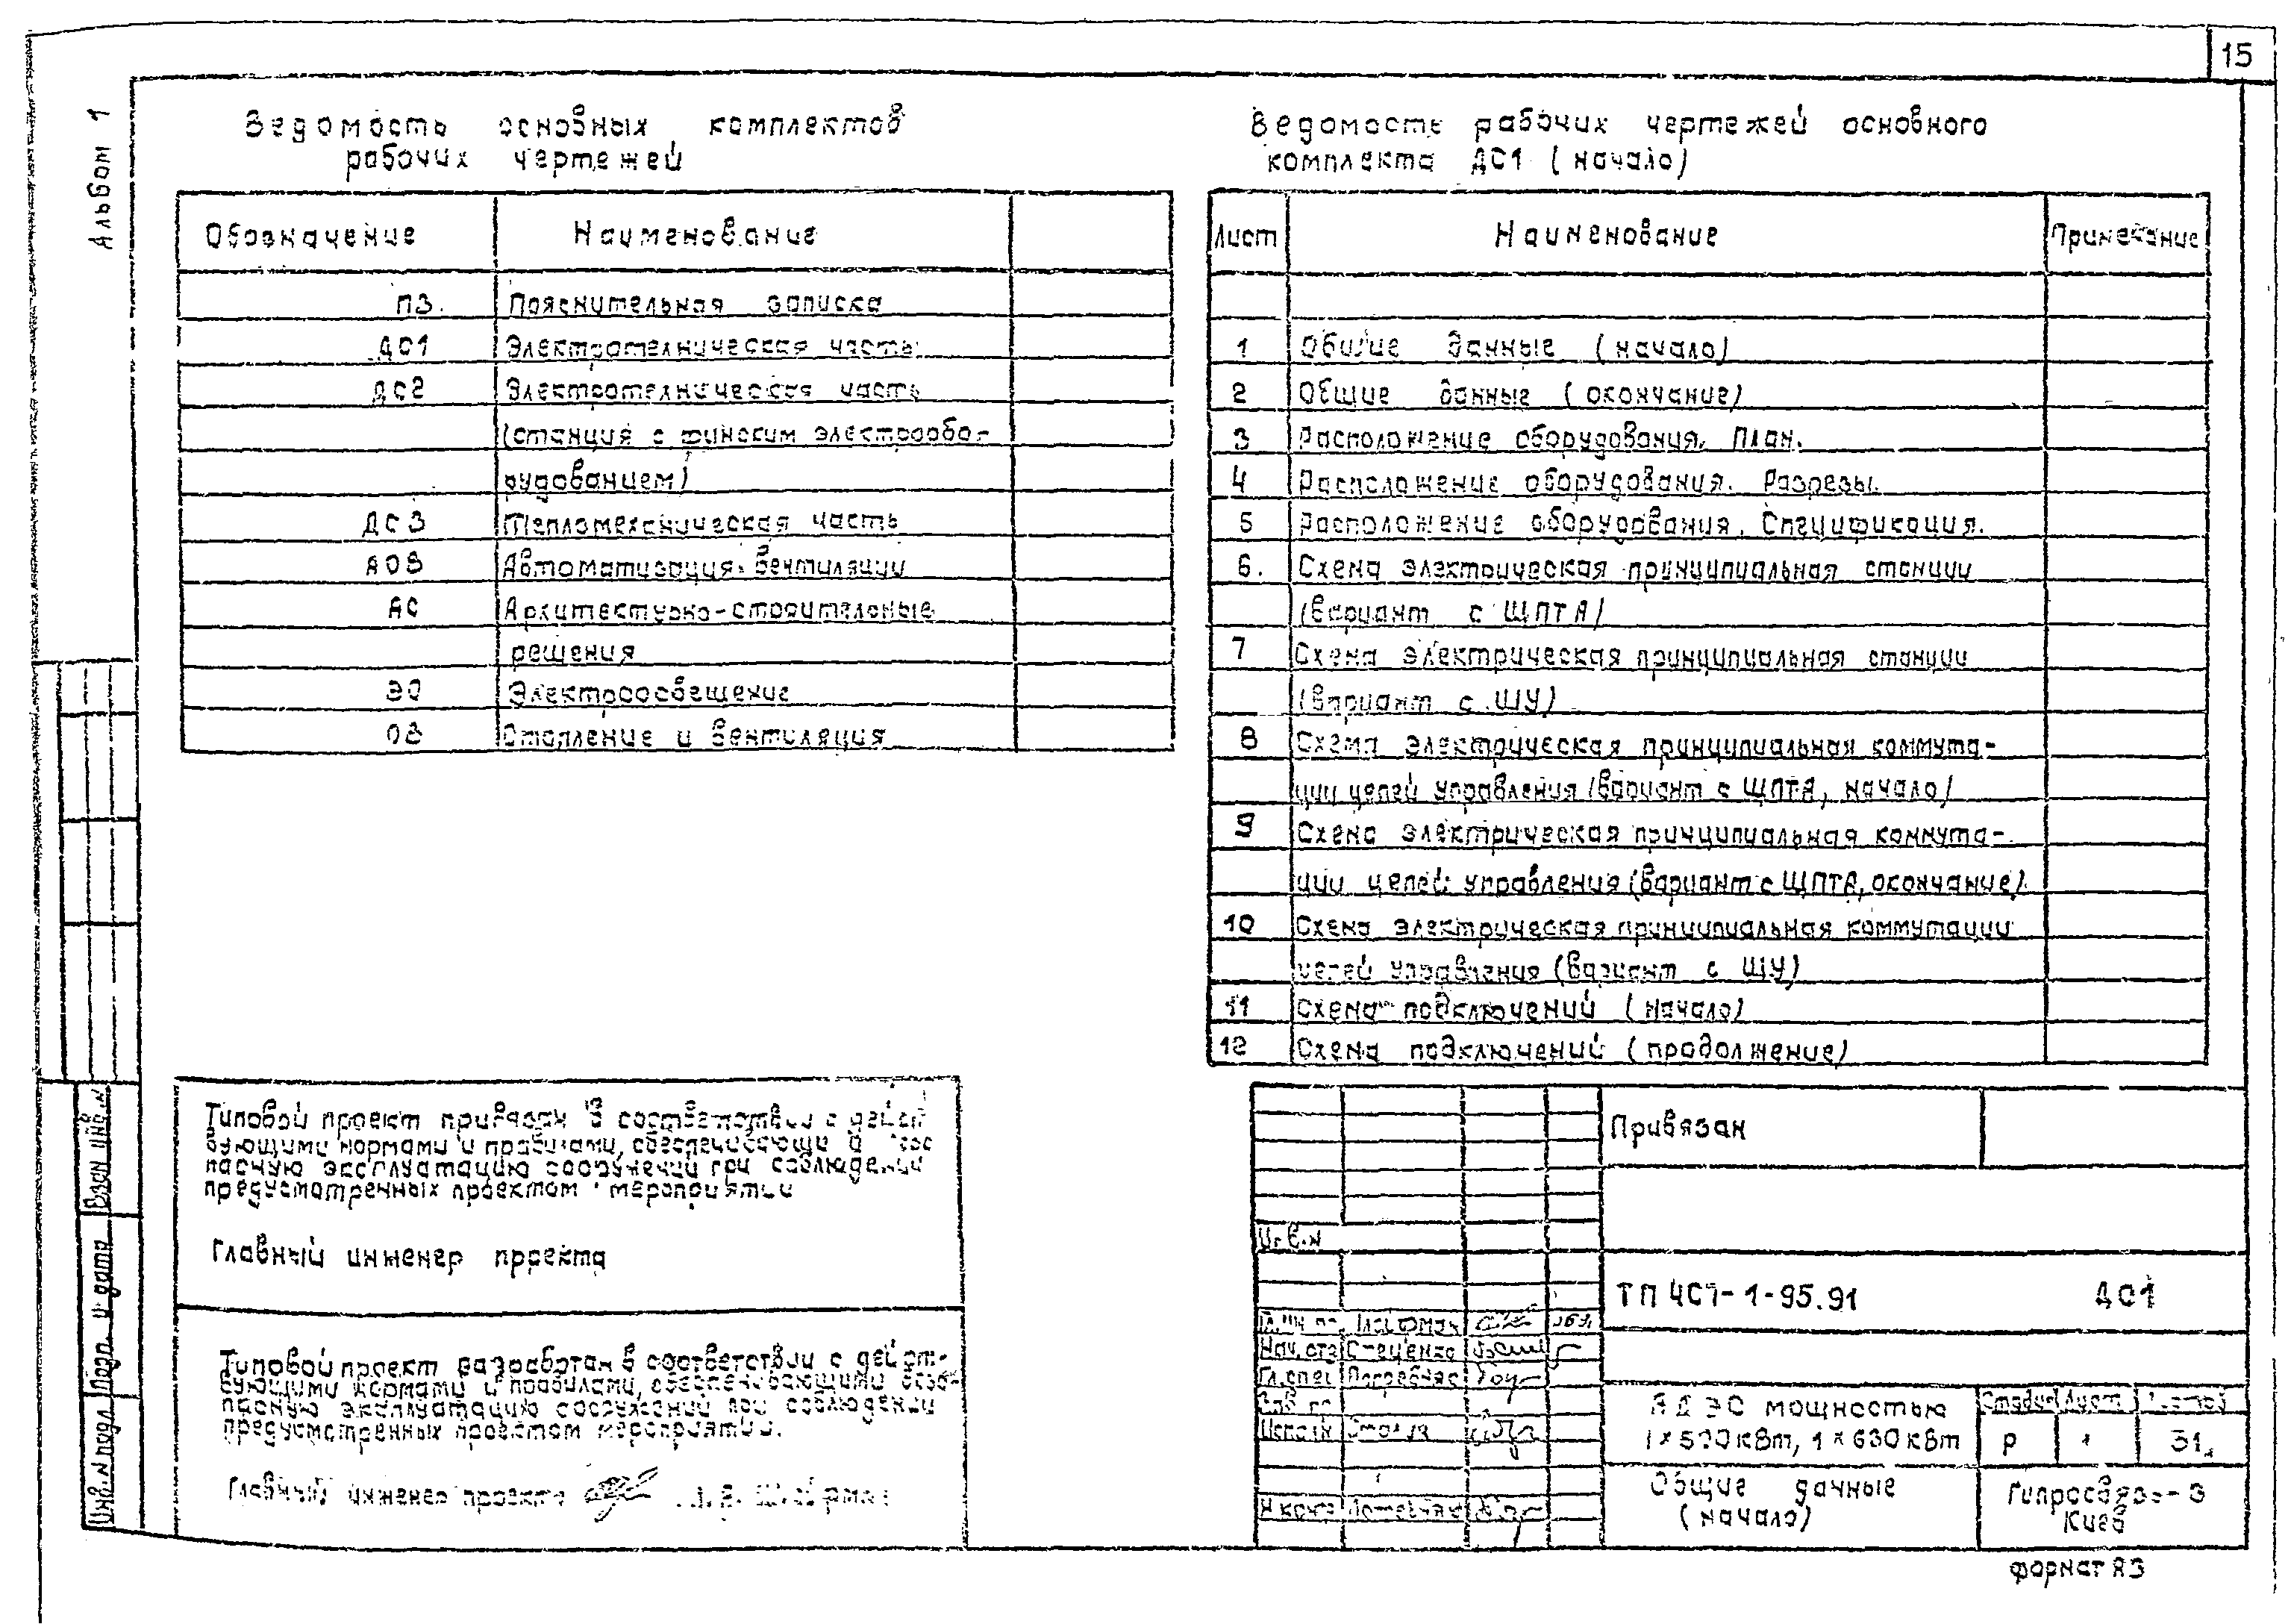 15
Альбом 1
Ведомость основных комплектов
рабочих чертежей
Обозначение Наименование
ПЗ. Пояснительная записка
ДС1 Электротехническая часть
ДС2 Электротехническая часть
(станция с финским электрообо-
рудованием)
ДС3 Тепломеханическая часть
АОВ Автоматизация вентиляции
АС Архитектурно-строительные
решения
ЭО Электроосвещение
ОВ Отопление и вентиляция
Ведомость рабочих чертежей основного
комплекта ДС1 (начало)
Лист Наименование Примечание
1 Общие данные (начало)
2 Общие данные (окончание)
3 Расположение оборудования. План.
4 Расположение оборудования. Разрезы.
5 Расположение оборудования. Спецификация.
6. Схема электрическая принципиальная станции
(вариант с ЩПТА)
7 Схема электрическая принципиальная станции
(вариант с ШУ)
8 Схема электрическая принципиальная коммута-
ции цепей управления (вариант с ЩПТА, начало)
9 Схема электрическая принципиальная коммута-
ции цепей управления (вариант с ЩПТА, окончание)
10 Схема электрическая принципиальная коммутации
цепей управления (вариант с ШУ)
11 Схема подключений (начало)
12 Схема подключений (продолжение)
Типовой проект привязан в соответствии с дейст
вующими нормами и правилами,
пасную эксплуатацию сооружений при соблюдении
предусмотренных проектом мероприятий
Главный инженер проекта
Типовой проект разработан в соответствии с дейст-
вующими нормами и правилами, обеспечивающими безо
пасную эксплуатацию сооружений при соблюдении
предусмотренных проектом мероприятий.
Главный инженер проекта
Взам инв.N
Подп. и дата
Инв.N подл
Привязан
Инв.N
ТП 407-1-95.91 ДС1
Гл.инж.пр.
Нач.отд Стеценко
Гл.спец
Исполн
Н.конт
АДЭС мощностью
1×500кВт, 1×630кВт
Стадия Лист Листов
Р 1 31
Общие данные
(начало)
Гипросвязь-3
Киев
формат А3